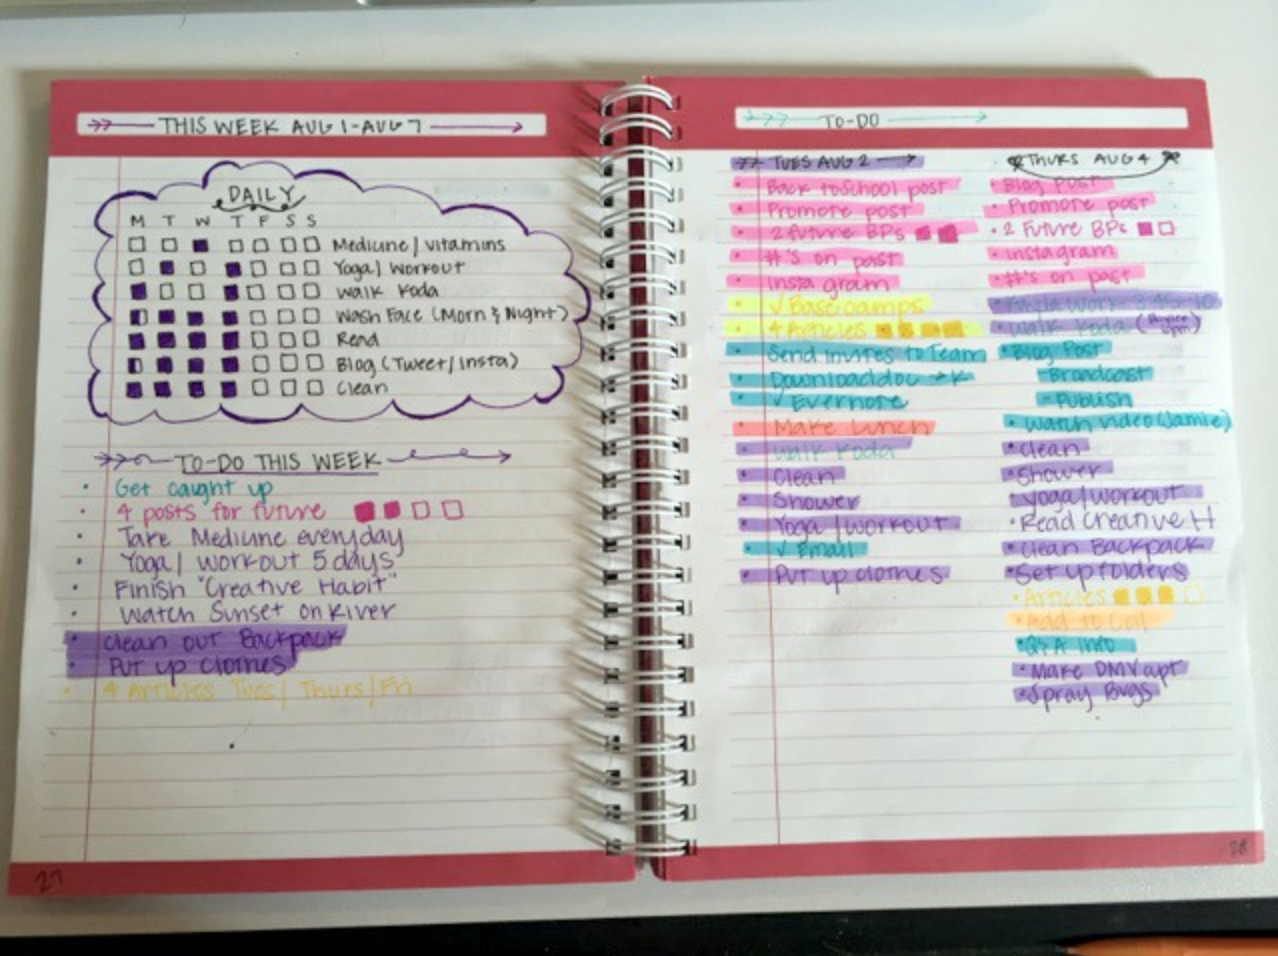 THIS WEEK AUG 1-AUG 7
DAILY
M T W T F S S
Medicine/vitamins
Yoga/Workout
Walk Koda
Wash Face (Morn & Night)
Read
Blog (Tweet/Insta)
Clean
TO-DO THIS WEEK
• Get caught up
• 4 posts for future
• Take Medicine everyday
• Yoga/workout 5 days
• Finish "Creative Habit"
• Watch Sunset on River
• Clean out Backpack
• Put up clothes
• 4 Articles Tues/Thurs/Fri
27
TO-DO
TUES AUG 2
• Back to School post
• Promote post
• 2 future BPs
• #'s on past
• Instagram
• √ Basecamps
• 4 Articles
• Send invites to Team
• Download doc
• √ Evernote
• Make Lunch
• Walk Koda
• Clean
• Shower
• Yoga/workout
• √ Email
• Put up clothes
THURS AUG 4
• Blog Post
• Promote post
• 2 Future BPs
• Instagram
• #'s on past
• Kayla Work 3:45-10
• Walk Koda
• Blog Post
- Broadcast
- Publish
• Watch video (Jamie)
• Clean
• Shower
• Yoga/workout
• Read Creative H
• Clean Backpack
• Set up folders
• Articles
• Add to Cal
• Q&A info
• Make DMV apt
• Spray Bugs
28